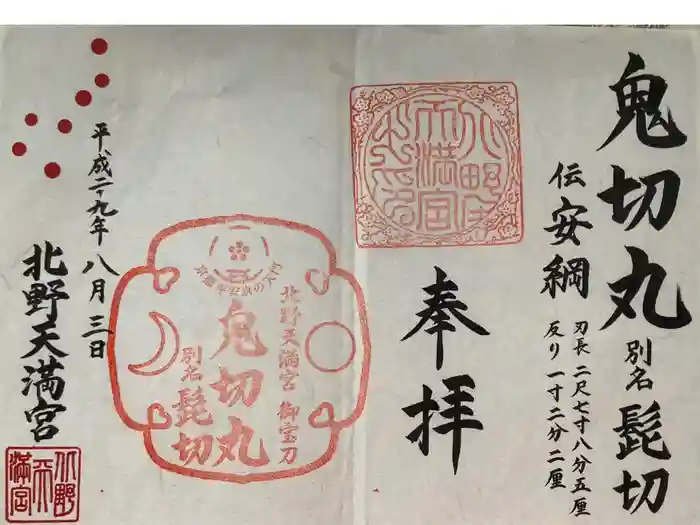 鬼切丸 別名 髭切
伝 安綱
刃長 二尺七寸八分五厘
反り 一寸二分二厘
奉拝
北野天満宮 御宝刀
鬼切丸
別名 髭切
平成二十九年八月三日
北野天満宮
北野天満宮